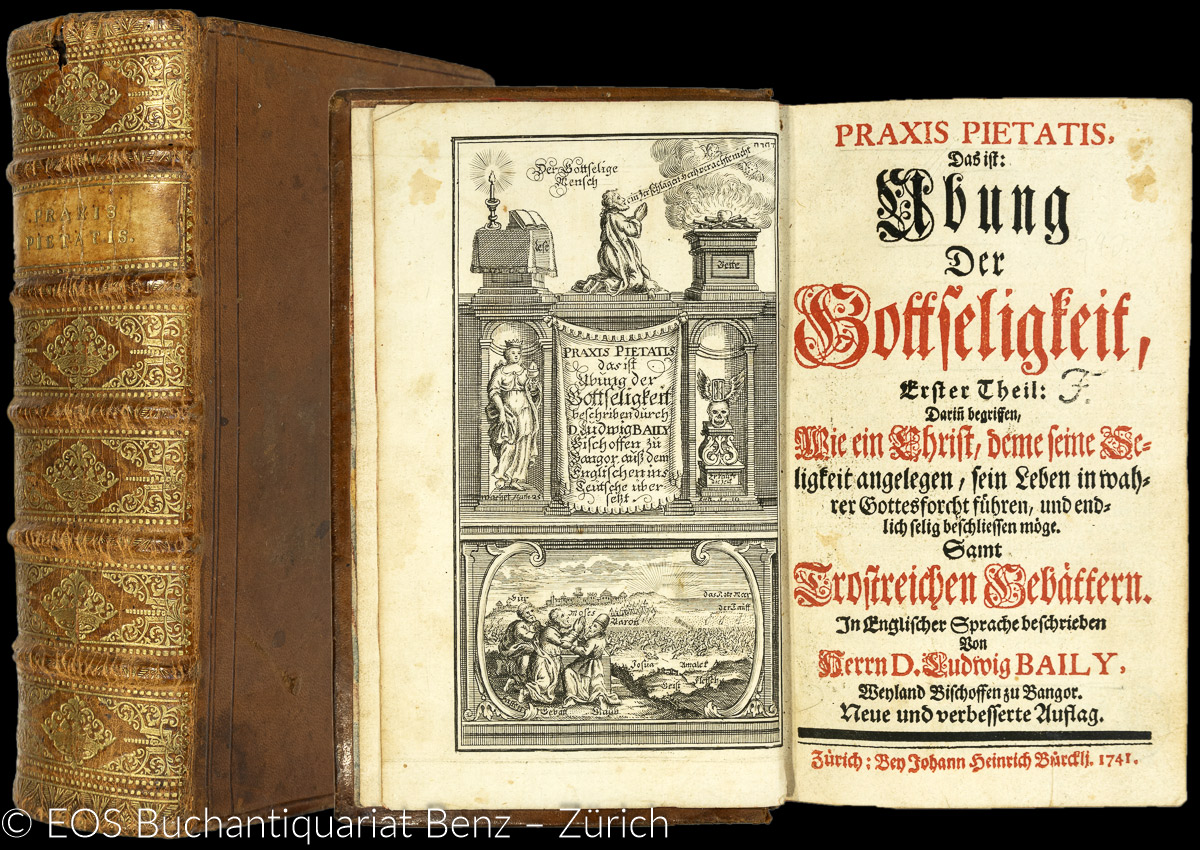 PRAXIS
PIETATIS.
Der Gottselige
Mensch
ein zerschlagen
nicht
יהוה
PRAXIS PIETATIS
das ist
Ubung der
Gottseligkeit
beschriben durch
D. Ludwig BAILY
Bischoffen zu
Bangor, auß dem
Englischen ins
Teutsche uber
setzt.
Hur
Moses
Aaron
das Rote Meer
der Taufft
Josua
Amaleck
Geist
Fleisch
Gebätt
PRAXIS PIETATIS,
Das ist:
Ubung
Der
Gottseligkeit,
Erster Theil:
F.
Dariñ begriffen,
Wie ein Christ, deme seine Se-
ligkeit angelegen, sein Leben in wah-
rer Gottesforcht führen, und end-
lich selig beschliessen möge.
Samt
Trostreichen Gebättern.
In Englischer Sprache beschrieben
Von
Herrn D. Ludwig BAILY,
Weyland Bischoffen zu Bangor.
Neue und verbesserte Auflag.
Zürich: Bey Johann Heinrich Bürcklj. 1741.
© EOS Buchantiquariat Benz – Zürich